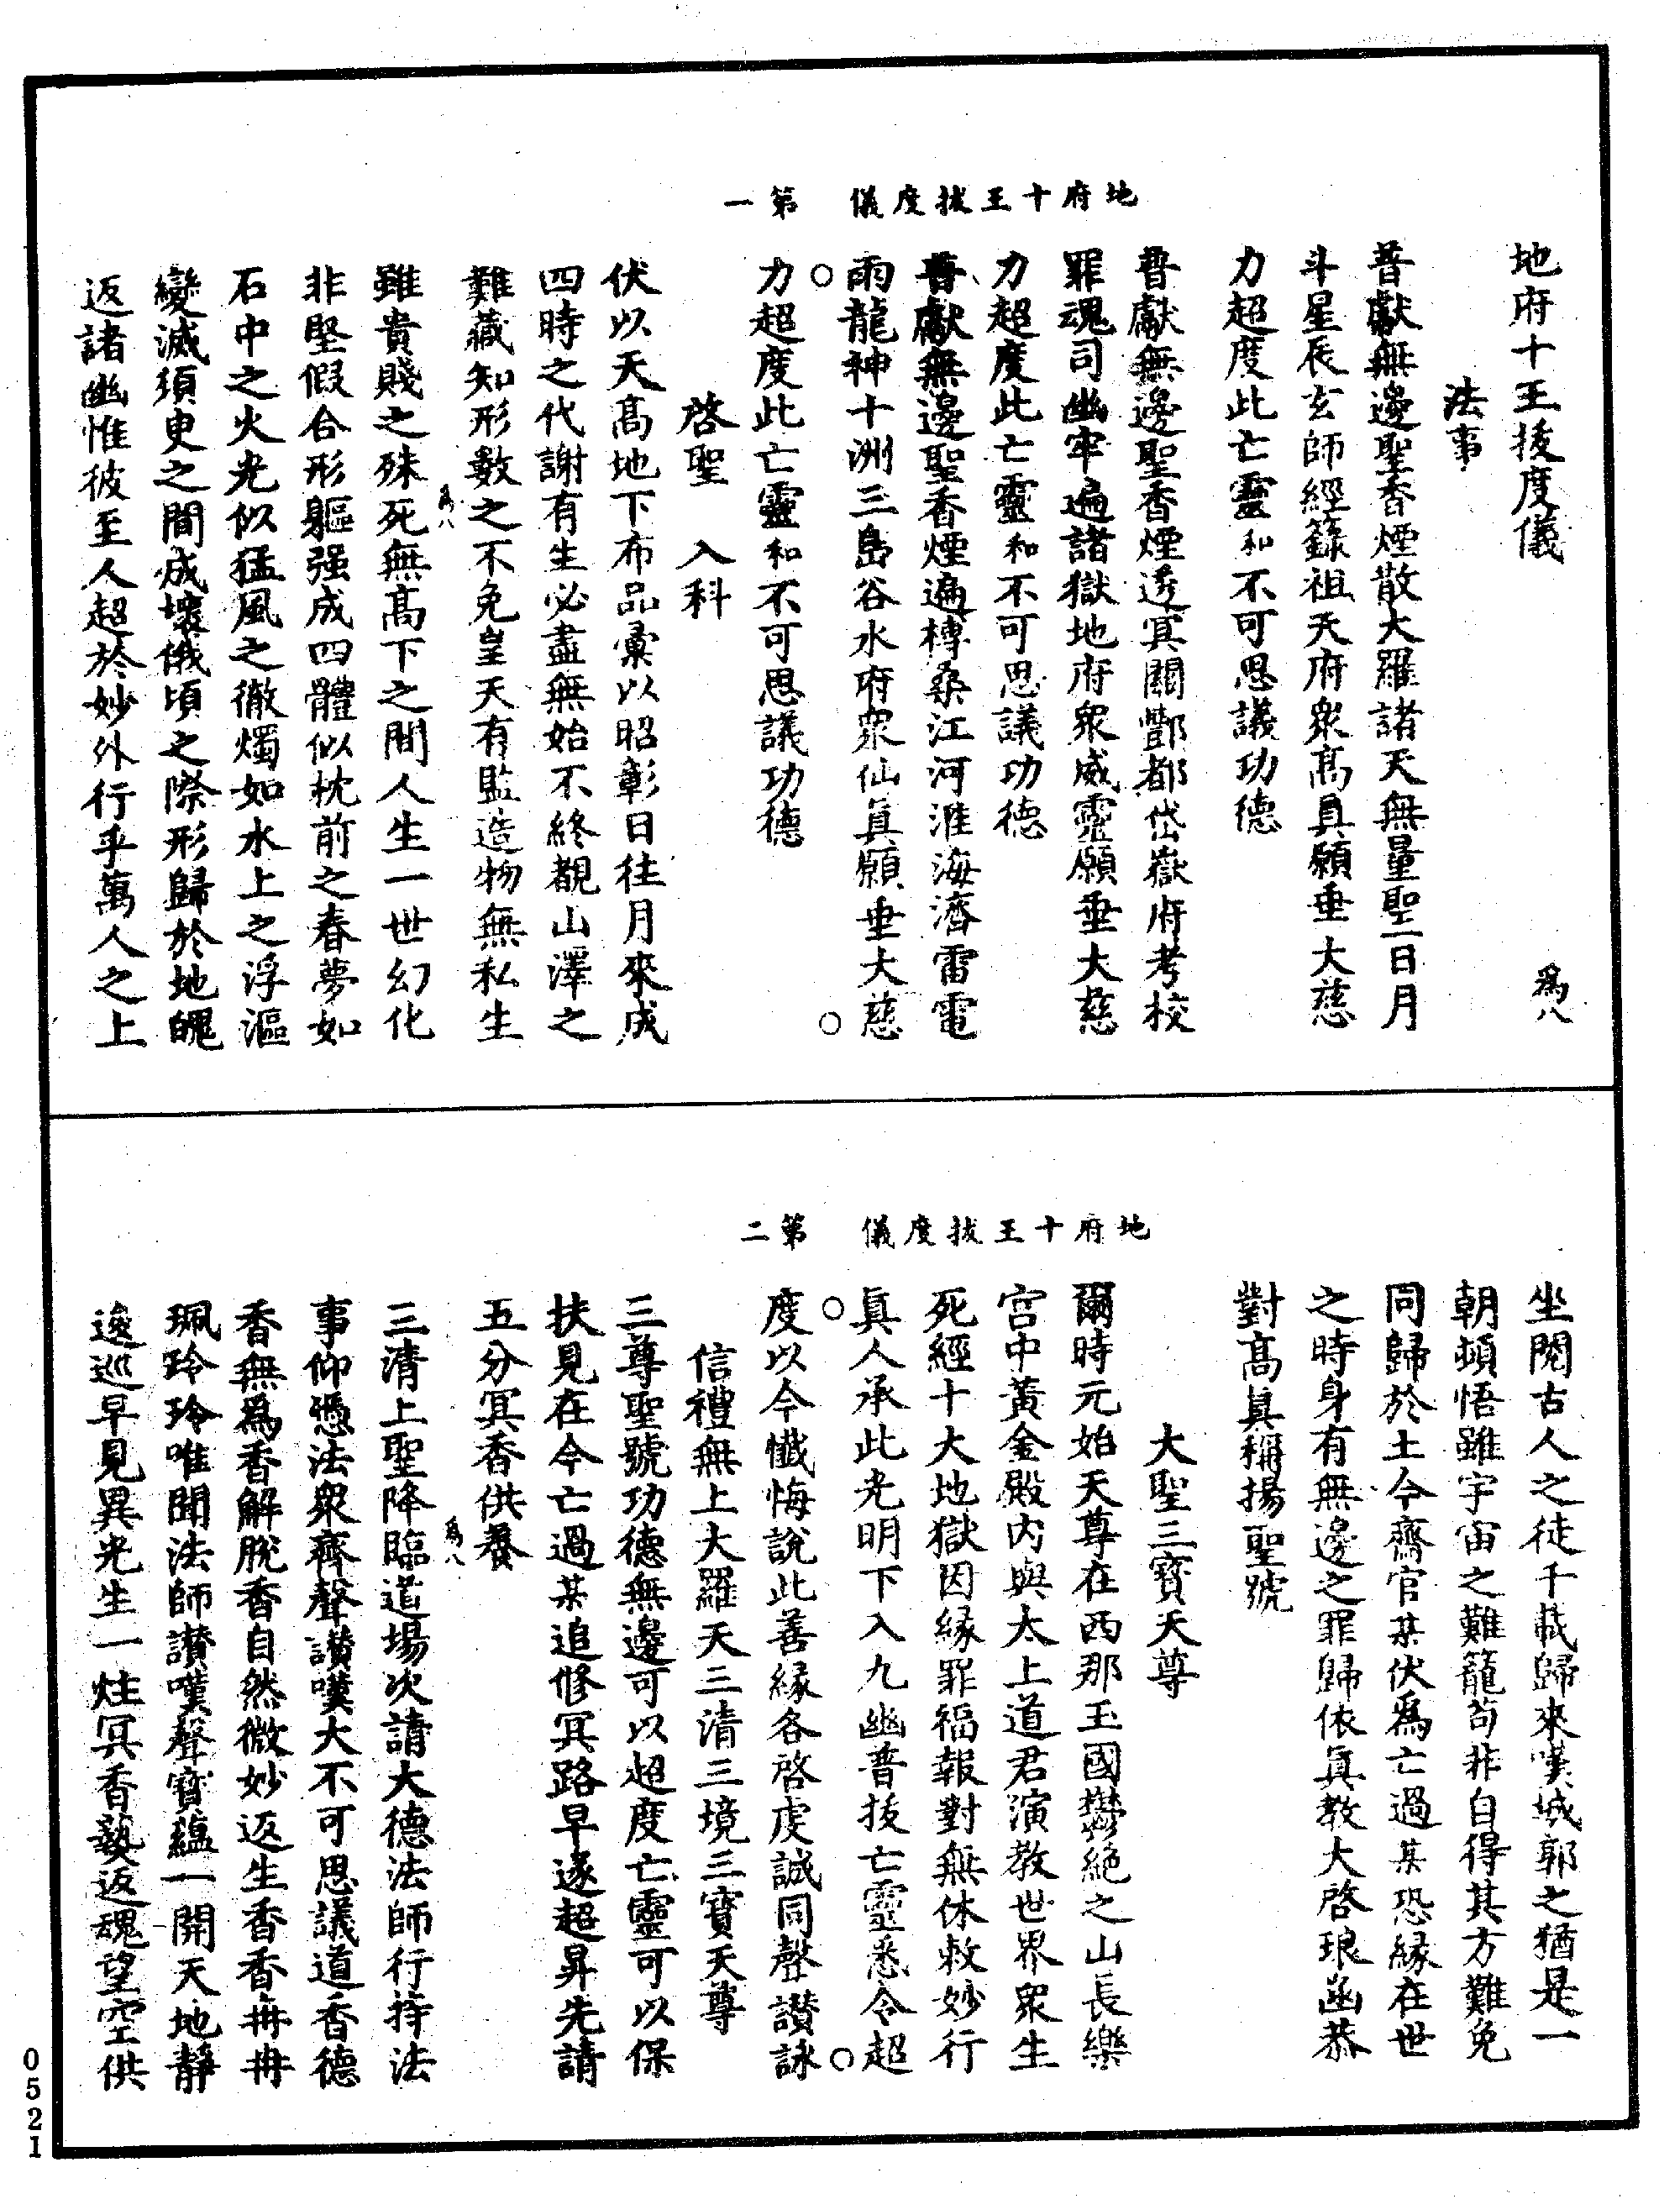 地府十王拔度儀 第一
地府十王拔度儀 爲八
法事
普獻無邊聖香煙散大羅諸天無量聖日月
斗星辰玄師經籙祖天府衆高眞願垂大慈
力超度此亡靈和不可思議功德
普獻無邊聖香煙透冥關酆都岱嶽府考校
罪魂司幽牢遍諸獄地府衆威靈願垂大慈
力超度此亡靈和不可思議功德
普獻無邊聖香煙遍榑桑江河淮海濟雷電
雨龍神十洲三島谷水府衆仙眞願垂大慈
力超度此亡靈和不可思議功德
啓聖 入科
伏以天高地下布品彙以昭彰日往月來成
四時之代謝有生必盡無始不終覩山澤之
難藏知形數之不免皇天有監造物無私生
爲八
雖貴賤之殊死無高下之間人生一世幻化
非堅假合形軀强成四體似枕前之春夢如
石中之火光似猛風之徹燭如水上之浮漚
變滅須臾之間成壞俄頃之際形歸於地魄
返諸幽惟彼至人超於妙外行乎萬人之上
地府十王拔度儀 第二
坐閱古人之徒千載歸來嘆城郭之猶是一
朝頓悟雖宇宙之難籠苟非自得其方難免
同歸於土今齋官某伏爲亡過某恐緣在世
之時身有無邊之罪歸依眞教大啓琅函恭
對高眞稱揚聖號
大聖三寶天尊
爾時元始天尊在西那玉國鬱絶之山長樂
宮中黃金殿內與太上道君演教世界衆生
死經十大地獄因緣罪福報對無休敕妙行
眞人承此光明下入九幽普拔亡靈悉令超
度以今懺悔說此善緣各啓虔誠同聲讃詠
信禮無上大羅天三清三境三寶天尊
三尊聖號功德無邊可以超度亡靈可以保
扶見在今亡過某追修冥路早遂超昇先請
五分冥香供養
爲八
三清上聖降臨道場次請大德法師行持法
事仰憑法衆齊聲讃嘆大不可思議道香德
香無爲香解脫香自然微妙返生香香冉冉
珮玲玲唯聞法師讃嘆聲寶蘊一開天地靜
逡巡早見異光生一炷冥香爇返魂望空供
0521